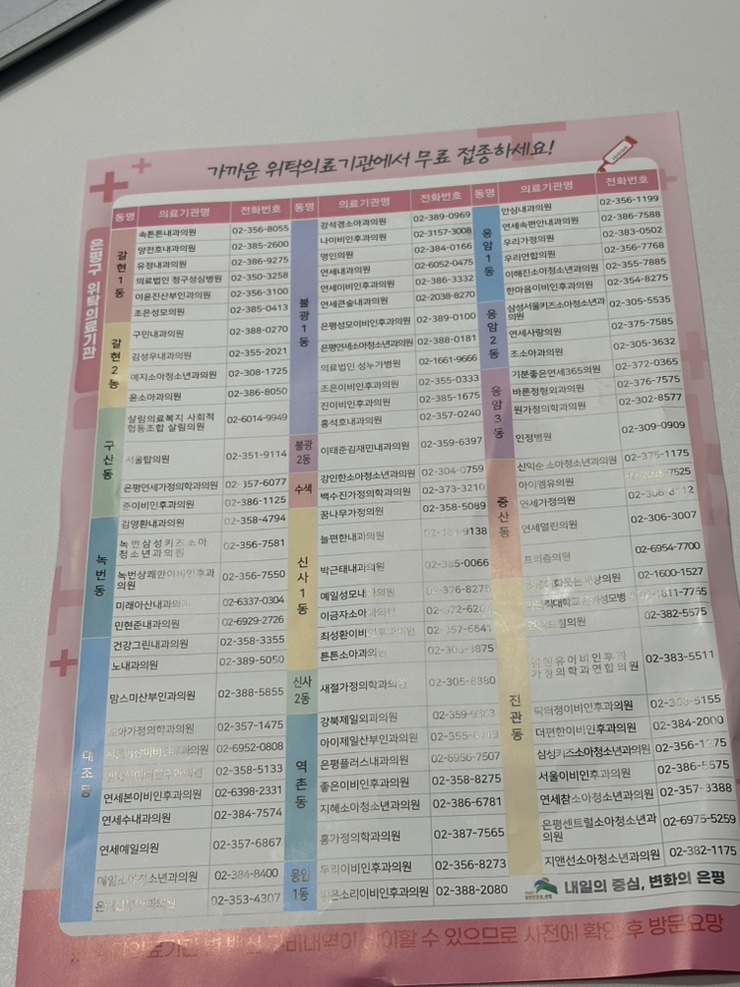 가까운 위탁의료기관에서 무료 접종하세요!
은평구 위탁의료기관
동명 의료기관명 전화번호
갈현1동
속튼튼내과의원 02-356-8055
양전호내과의원 02-385-2600
유정내과의원 02-386-9275
의료법인 청구성심병원 02-350-3258
이윤진산부인과의원 02-356-3100
조은성모의원 02-385-0413
갈현2동
구민내과의원 02-388-0270
김성우내과의원 02-355-2021
예지소아청소년과의원 02-308-1725
윤소아과의원 02-386-8050
구산동
살림의료복지 사회적
협동조합 살림의원 02-6014-9949
서울탑의원 02-351-9114
은평연세가정의학과의원 02-357-6077
준이비인후과의원 02-386-1125
녹번동
김영환내과의원 02-358-4794
녹번삼성키즈소아
청소년과의원 02-356-7581
녹번상쾌한이비인후과
의원 02-356-7550
미래아산내과의원 02-6337-0304
민현준내과의원 02-6929-2726
대조동
건강그린내과의원 02-358-3355
노내과의원 02-389-5050
맘스미산부인과의원 02-388-5855
소아가정의학과의원 02-357-1475
02-6952-0808
02-358-5133
연세본이비인후과의원 02-6398-2331
연세수내과의원 02-384-7574
연세예일의원 02-357-6867
예일소아청소년과의원 02-384-8400
02-353-4307
동명 의료기관명 전화번호
불광1동
강석경소아과의원 02-389-0969
나이비인후과의원 02-3157-3008
명인의원 02-384-0166
연세내과의원 02-6052-0475
연세이비인후과의원 02-386-3332
연세큰숲내과의원 02-2038-8270
은평성모이비인후과의원 02-389-0100
은평연세소아청소년과의원 02-388-0181
의료법인 성누가병원 02-1661-9666
조은이비인후과의원 02-355-0333
진이비인후과의원 02-385-1675
홍석호내과의원 02-357-0240
불광2동
이태준김재민내과의원 02-359-6397
수색
강인한소아청소년과의원 02-304-0759
백수진가정의학과의원 02-373-3210
신사1동
꿈나무가정의원 02-358-5089
늘편한내과의원
박근태내과의원 02-385-0066
예일성모내과의원 02-376-8275
이금자소아과의원
최성환이비인후과의원 02-357-6541
튼튼소아과의원
신사2동
새절가정의학과의원 02-305-8380
역촌동
강북제일외과의원
아이제일산부인과의원
은평플러스내과의원 02-6956-7507
좋은이비인후과의원 02-358-8275
지혜소아청소년과의원 02-386-6781
홍가정의학과의원 02-387-7565
응암1동
두리이비인후과의원 02-356-8273
맑은소리이비인후과의원 02-388-2080
동명 의료기관명 전화번호
응암1동
안심내과의원 02-356-1199
연세속편안내과의원 02-386-7588
우리가정의원 02-383-0502
우리연합의원 02-356-7768
이해진소아청소년과의원 02-355-7885
한마음이비인후과의원 02-354-8275
응암2동
삼성서울키즈소아청소년과
의원 02-305-5535
연세사랑의원 02-375-7585
조소아과의원 02-305-3632
응암3동
기분좋은연세365의원 02-372-0365
바른정형외과의원 02-376-7575
원가정의학과의원 02-302-8577
인정병원 02-309-0909
증산동
신익순 소아청소년과의원 02-375-1175
아이엠유의원
연세가정의원
연세열린의원 02-306-3007
프리즘의원 02-6954-7700
진관동
02-1600-1527
02-1811-7755
02-382-5575
이비인후과
가정의학과연합의원 02-383-5511
닥터정이비인후과의원
더편한이비인후과의원 02-384-2000
삼성키즈소아청소년과의원 02-356-1275
서울이비인후과의원 02-386-5575
연세참소아청소년과의원 02-357-3388
은평센트럴소아청소년과
의원 02-6975-5259
지앤선소아청소년과의원 02-382-1175
내일의 중심, 변화의 은평
위탁의료기관 별 백신 구비내역이 상이할 수 있으므로 사전에 확인 후 방문요망